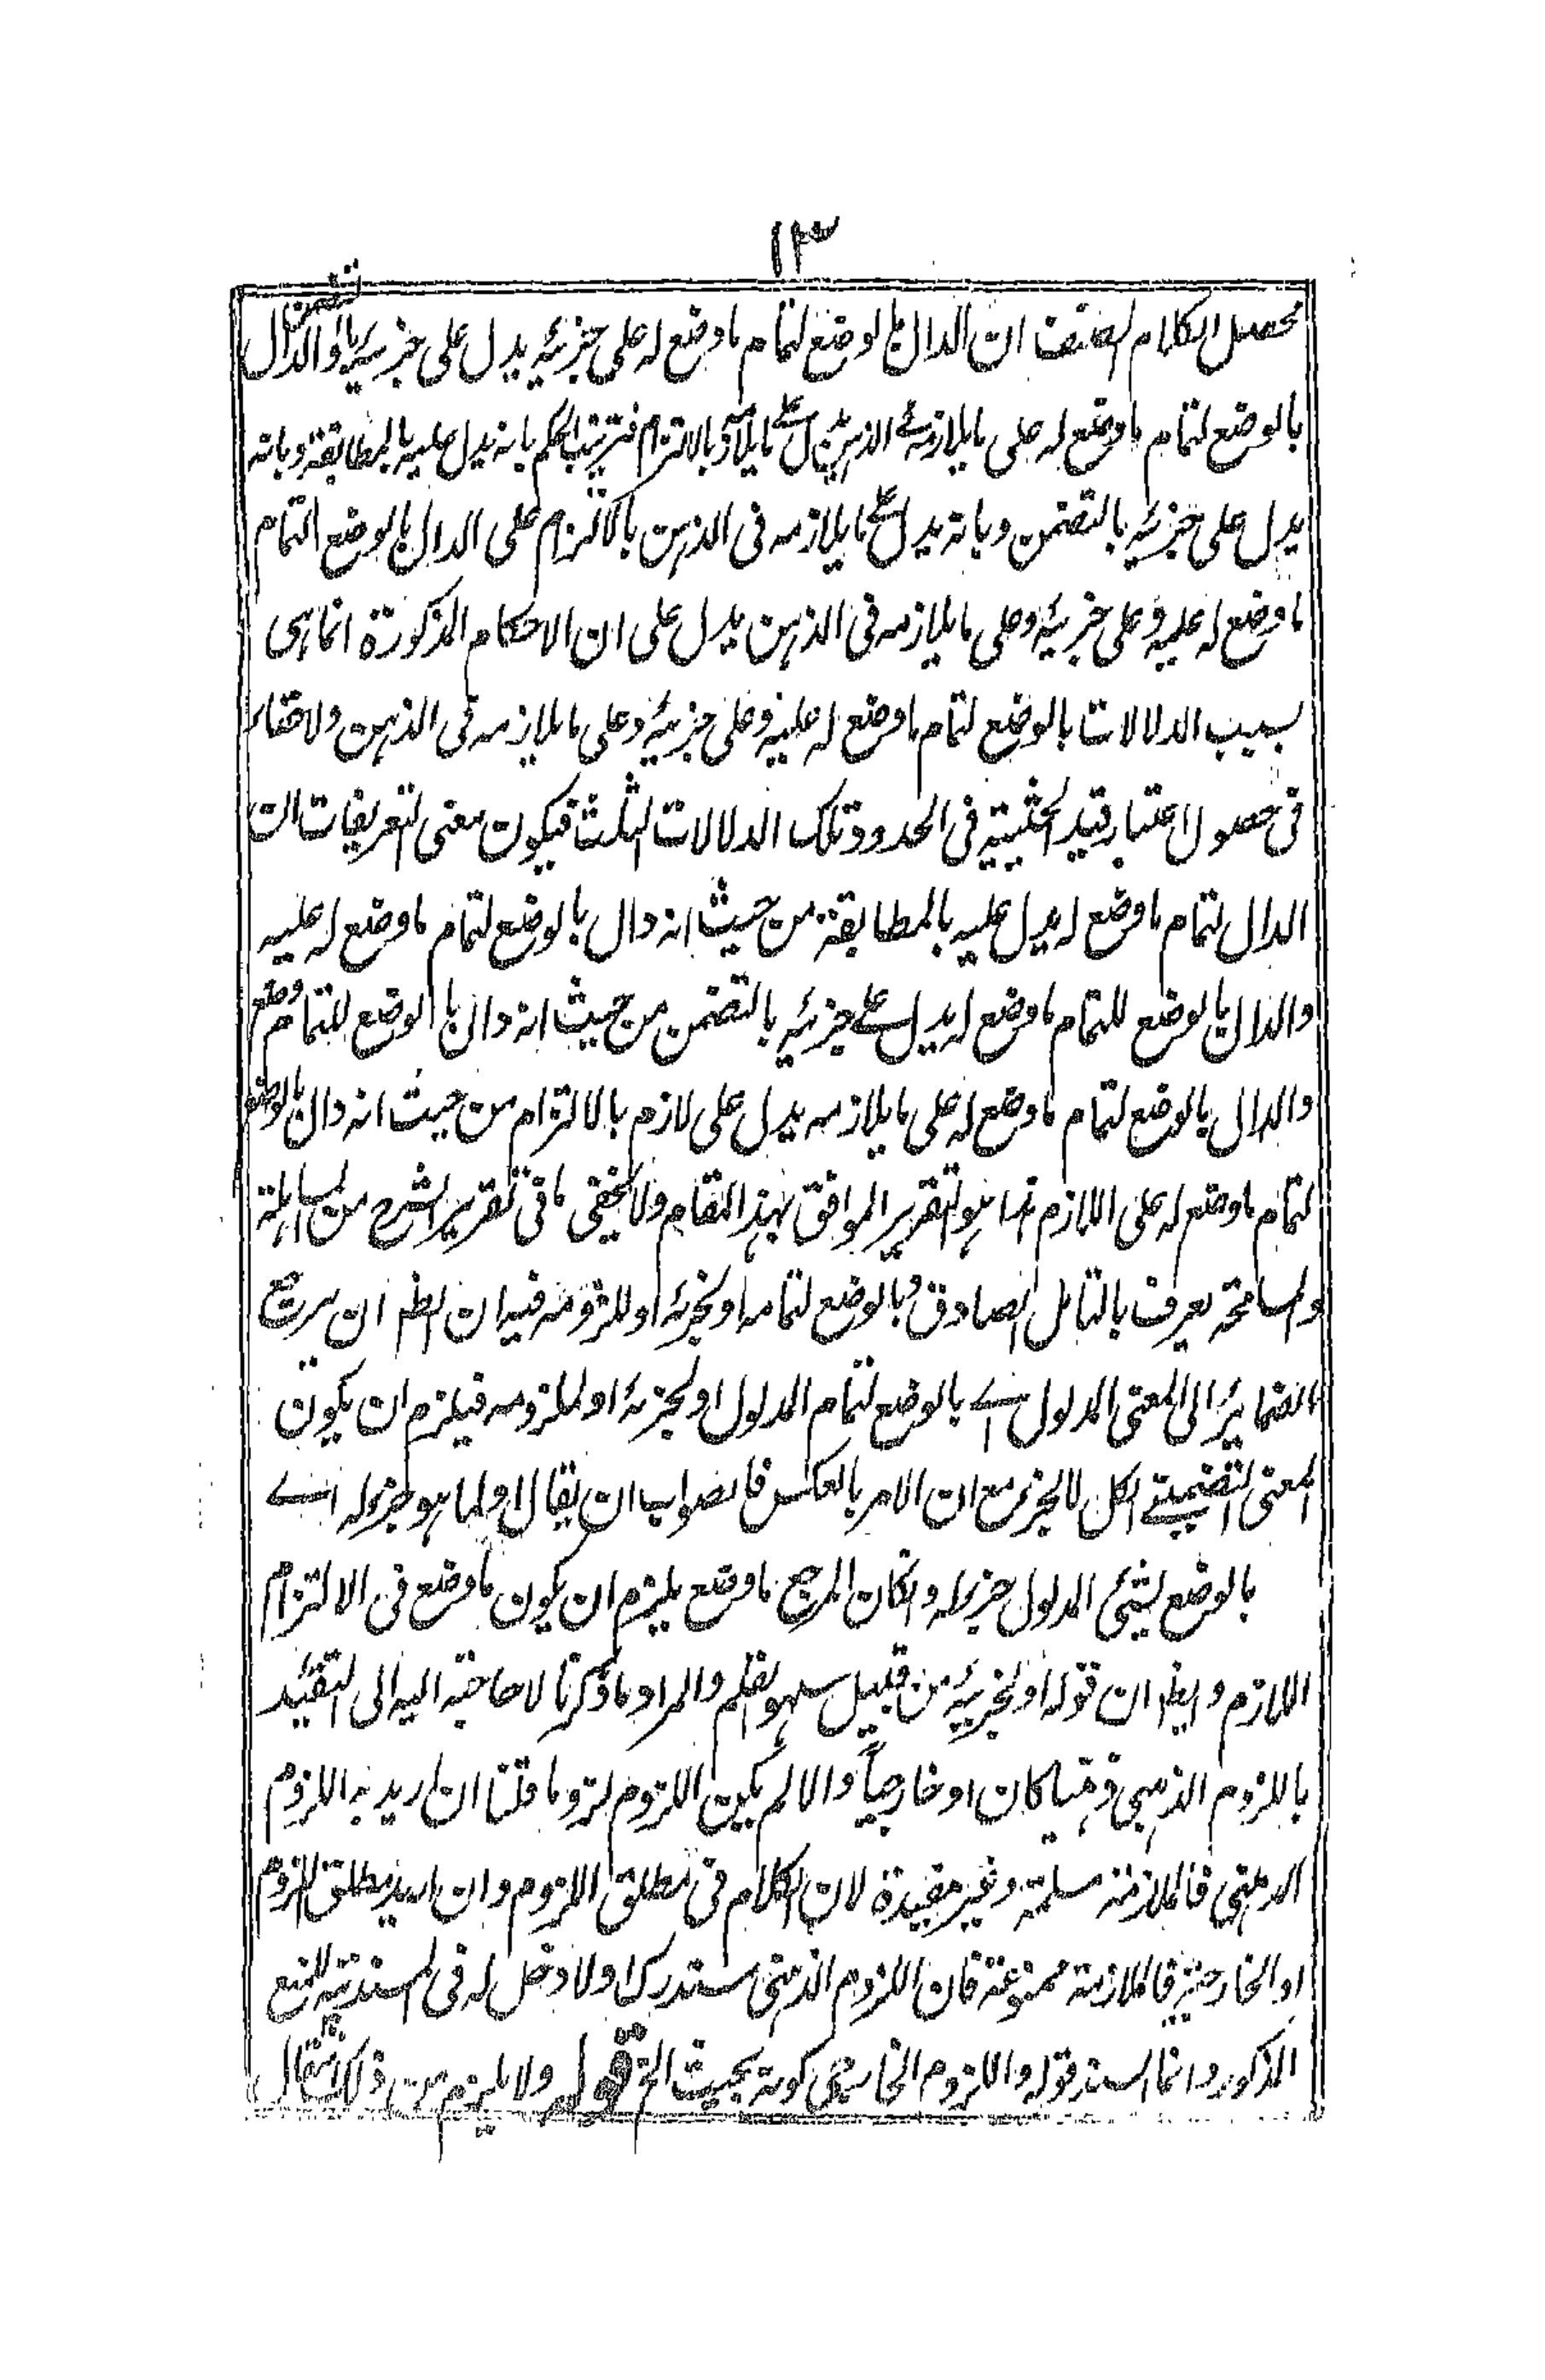 ١٣
محصل الكلام المصنف ان الدال بالوضع لتمام ماوضع له على جزئيه يدل على جزئيه بالتضمن والدال
بالوضع لتمام ماوضع له على مايلازمه فى الذهن يدل على مايلازمه بالالتزام فترتب الحكم بانه يدل عليه بالمطابقة وبانه
يدل على جزئيه بالتضمن وبانه يدل على مايلازمه فى الذهن بالالتزام على الدال بالوضع التمام
ماوضع له عليه وعلى جزئيه وعلى مايلازمه فى الذهن يدل على ان الاحكام المذكورة انماهى
بسبب الدلالات بالوضع لتمام ماوضع له عليه وعلى جزئيه وعلى مايلازمه فى الذهن ولاخفاء
فى حصول اعتبار قيد الحيثية فى الحدود وتلك الدلالات الثلث فيكون معنى التعريفات ان
الدال لتمام ماوضع له يدل عليه بالمطابقة من حيث انه دال بالوضع لتمام ماوضع له عليه
والدال بالوضع للتمام ماوضع له يدل على جزئيه بالتضمن من حيث انه دال بالوضع للتمام وضع
والدال بالوضع لتمام ماوضع له على مايلازمه يدل على لازم بالالتزام من حيث انه دال بالوضع
لتمام ماوضع له على اللازم هذا هو التقرير الموافق بهذا المقام ولايخفى مافى تقرير الشرح من المساهلة
والمسامحة يعرف بالتامل الصادق وبالوضع لتمامه اولجزئه اوللزومه فيه ان الظ ان يرجع
الضمائر الى المعنى المدلول اے بالوضع لتمام المدلول اولجزئه اولملزومه فيلزم ان يكون
المعنى التضمينے الكل لالجزء مع ان الامر بالعكس فالصواب ان يقال اولما هو جزوله اے
بالوضع لشيئ المدلول جزءله وانكان المرجع ماوضع يلزم ان يكون ماوضع فى الالتزام
اللازم والظ ان قوله اولجزئيه من قبيل سهو القلم والمراد ماذكرنا لاحاجة اليه الى التقييد
باللزوم الذهنى ذهنيا كان اوخارجياً والالم يكن اللزوم لزوما قلنا ان اريد به اللزوم
الذهنى فالملازمة مسلمة وغير مقيدة لان الكلام فى مطلق اللزوم وان اريد مطلق اللزوم
اوالخارجية فالملازمة ممنوعة فان اللزوم الذهنى مستدركا ولادخل له فى السندية للمنع
المذكور وانما السند قوله واللزوم الخارجى كونه بحيث الخ قوله ولايلزم من ذلك انتقال